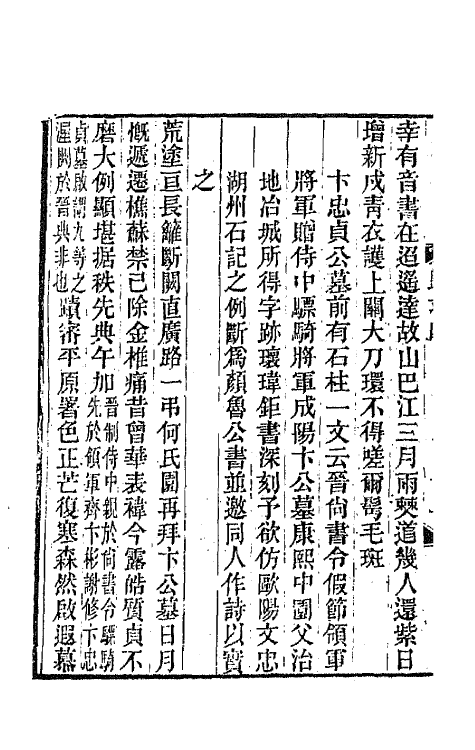 幸有音書在迢遙達故山巴江三月雨僰道幾人還紫日
增新戍靑衣護上關大刀環不得嗟爾鬢毛斑
卞忠貞公墓前有石柱一文云晉尙書令假節領軍
將軍贈侍中驃騎將軍成陽卞公墓康熙中園父治
地冶城所得字跡瓌瑋鉅書深刻予欲仿歐陽文忠
湖州石記之例斷爲顏魯公書並邀同人作詩以實
之
荒塗亘長籬斷闕直廣路一弔何氏園再拜卞公墓日月
慨遞遷樵蘇禁已除金椎痛昔曾華表禕今露皓質貞不
磨大例顯堪据秩先典午加晉制侍中親於尙書令驃騎
先於領軍齊卞彬謝修卞忠
貞墓啟謂九等之
渥闕於晉典非也蹟審平原署色正芒復塞森然啟遐慕